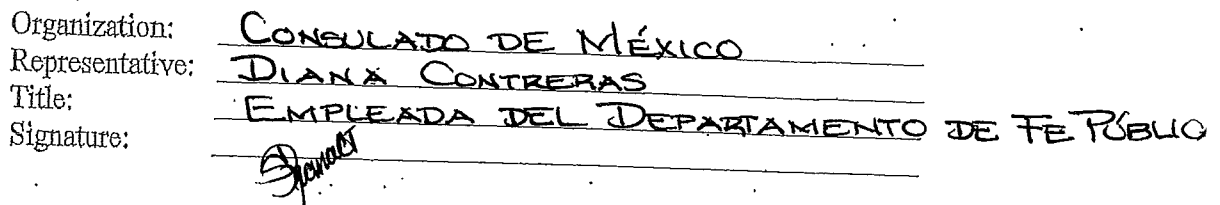 Organization: CONSULADO DE MÉXICO
Representative: DIANA CONTRERAS
Title: EMPLEADA DEL DEPARTAMENTO DE FE PÚBLIC
Signature: DianaCT